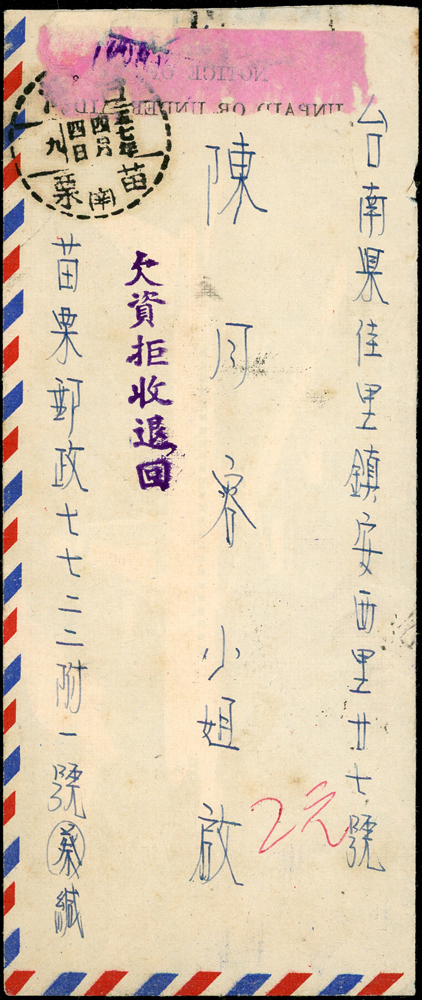 台南県佳里鎮安西里廿七號
陳月容小姐啟
2元
欠資拒收退回
苗栗郵政七七二二附一號蔡緘
五七年
四月
四日
九
苗栗
(南)
NOTICE OF
UNPAID OR UNDERPAID